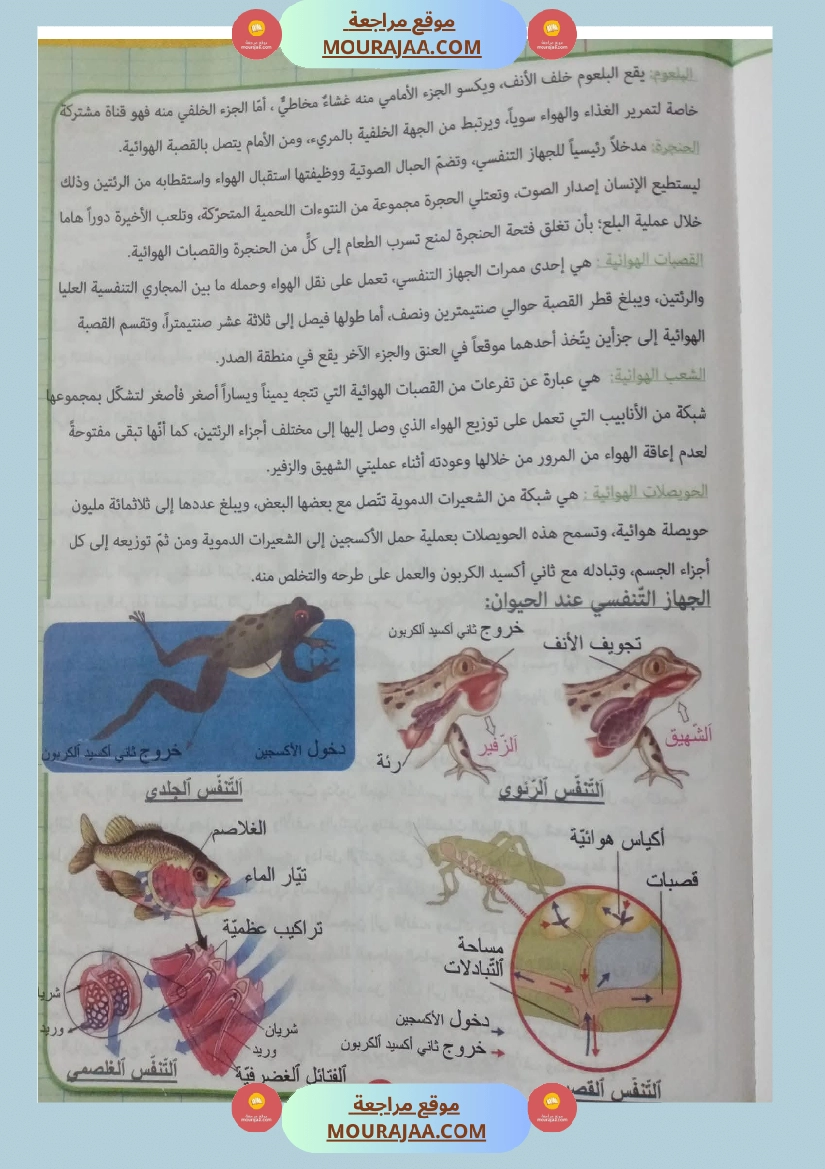 موقع مراجعة
MOURAJAA.COM
البلعوم: يقع البلعوم خلف الأنف، ويكسو الجزء الأمامي منه غشاءٌ مخاطيٌّ، أمّا الجزء الخلفي منه فهو قناة مشتركة
خاصة لتمرير الغذاء والهواء سوياً، ويرتبط من الجهة الخلفية بالمريء، ومن الأمام يتصل بالقصبة الهوائية.
الحنجرة: مدخلاً رئيسياً للجهاز التنفسي، وتضمّ الحبال الصوتية ووظيفتها استقبال الهواء واستقطابه من الرئتين وذلك
ليستطيع الإنسان إصدار الصوت، وتعتلي الحجرة مجموعة من النتوءات اللحمية المتحرّكة، وتلعب الأخيرة دوراً هاما
خلال عملية البلع؛ بأن تغلق فتحة الحنجرة لمنع تسرب الطعام إلى كلٍّ من الحنجرة والقصبات الهوائية.
القصبات الهوائية : هي إحدى ممرات الجهاز التنفسي، تعمل على نقل الهواء وحمله ما بين المجاري التنفسية العليا
والرئتين، ويبلغ قطر القصبة حوالي صنتيمترين ونصف، أما طولها فيصل إلى ثلاثة عشر صنتيمتراً، وتقسم القصبة
الهوائية إلى جزأين يتّخذ أحدهما موقعاً في العنق والجزء الآخر يقع في منطقة الصدر.
الشعب الهوائية: هي عبارة عن تفرعات من القصبات الهوائية التي تتجه يميناً ويساراً أصغر فأصغر لتشكّل بمجموعها
شبكة من الأنابيب التي تعمل على توزيع الهواء الذي وصل إليها إلى مختلف أجزاء الرئتين، كما أنّها تبقى مفتوحةً
لعدم إعاقة الهواء من المرور من خلالها وعودته أثناء عمليتي الشهيق والزفير.
الحويصلات الهوائية : هي شبكة من الشعيرات الدموية تتّصل مع بعضها البعض، ويبلغ عددها إلى ثلاثمائة مليون
حويصلة هوائية، وتسمح هذه الحويصلات بعملية حمل الأكسجين إلى الشعيرات الدموية ومن ثمّ توزيعه إلى كل
أجزاء الجسم، وتبادله مع ثاني أكسيد الكربون والعمل على طرحه والتخلص منه.
الجهاز التّنفسي عند الحيوان:
خروج ثاني أكسيد ٱلكربون
تجويف الأنف
ٱلشّهيق
ٱلزّفير
رئة
ٱلتّنفّس ٱلرّئوي
دخول الأكسجين
خروج ثاني أكسيد ٱلكربون
ٱلتّنفّس ٱلجلدي
أكياس هوائيّة
قصبات
مساحة
ٱلتّبادلات
دخول الأكسجين
خروج ثاني أكسيد ٱلكربون
الغلاصم
تيّار الماء
تراكيب عظميّة
وريد
شريان
وريد
ٱلفتائل ٱلغضرفيّة
ٱلتّنفّس ٱلغلصمي
ٱلتّنفّس
موقع مراجعة
MOURAJAA.COM